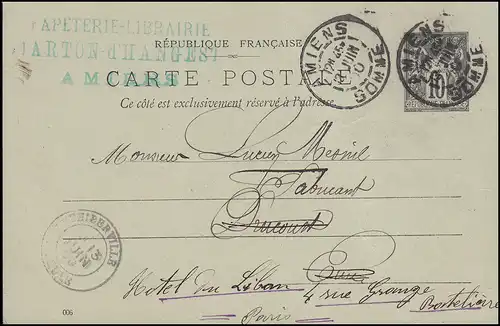 PAPETERIE-LIBRAIRIE
RÉPUBLIQUE FRANÇAISE
CARTON-d'HANGEST
AMIENS
CARTE POSTALE
Ce côté est exclusivement réservé à l'adresse.
AMIENS SOMME
AMIENS SOMME
10
Monsieur Lucien Mesnil
Fabricant
Drucourt
THIBERVILLE
13 JUIN
EURE
Eure
Hotel du Liban
4 rue Grange Batelière
Paris
006